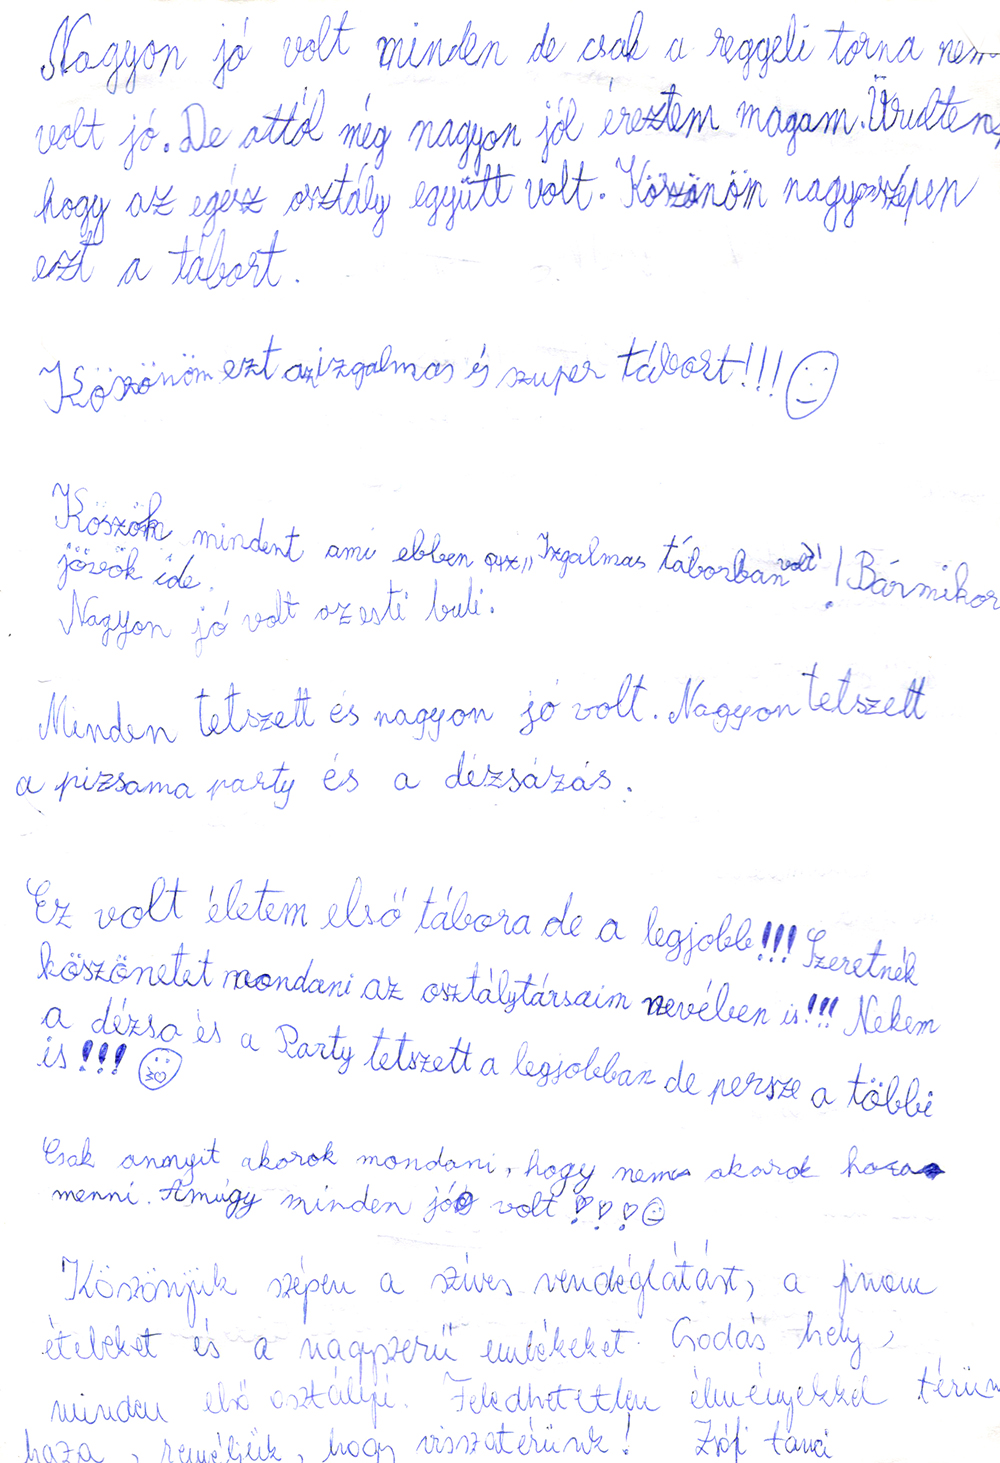 Nagyon jó volt minden de csak a reggeli torna nem
volt jó. De attól még nagyon jól éreztem magam. Örültem,
hogy az egész osztály együtt volt. Köszönöm nagyon szépen
ezt a tábort.
Köszönöm ezt az izgalmas és szuper tábort!!!
Köszök mindent ami ebben az "Izgalmas táborban volt"! Bármikor
jövök ide.
Nagyon jó volt az esti buli.
Minden tetszett és nagyon jó volt. Nagyon tetszett
a pizsama party és a dézsázás.
Ez volt életem első tábora de a legjobb!!! Szeretnék
köszönetet mondani az osztálytársaim nevében is!!! Nekem
a dézsa és a Party tetszett a legjobban de persze a többi
is!!!
Csak annyit akarok mondani, hogy nem akarok haza
menni. Amúgy minden jó volt !!!
Köszönjük szépen a szíves vendéglátást, a finom
ételeket és a nagyszerű emlékeket. Csodás hely,
minden első osztályú. Feledhetetlen élményekkel térünk
haza, reméljük, hogy visszatérünk! Zsófi tanci